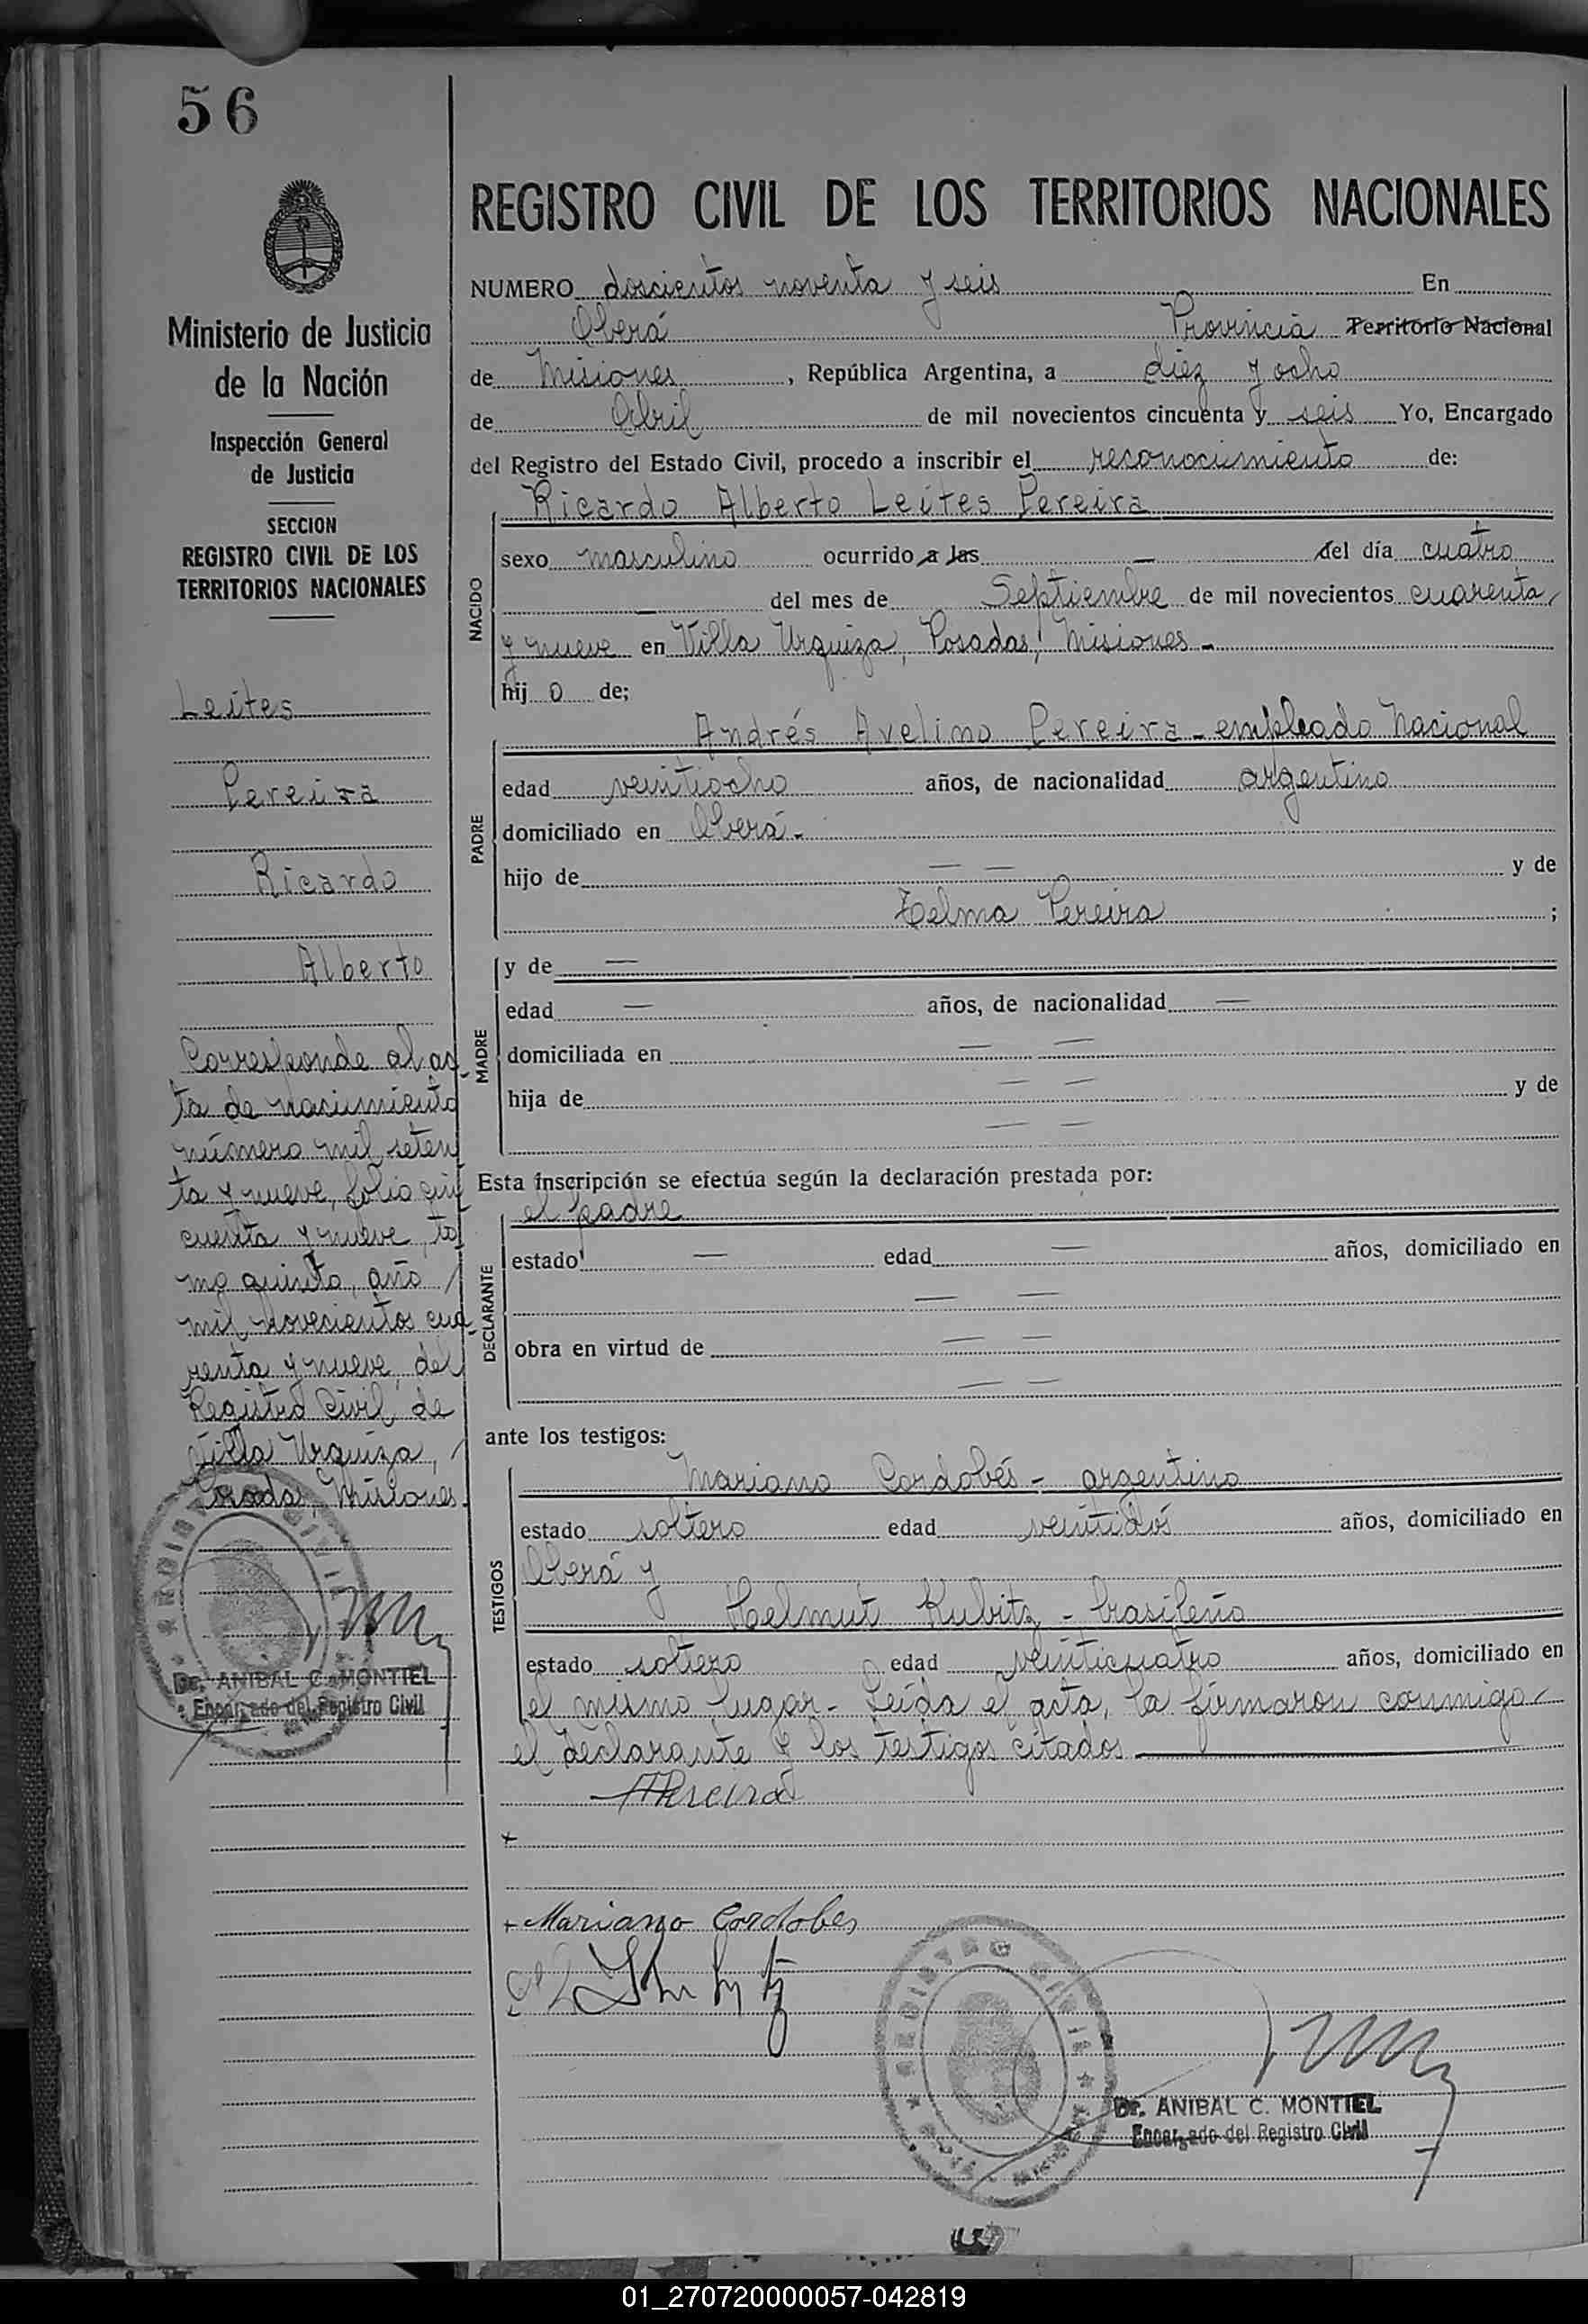 56
Ministerio de Justicia
de la Nación
Inspección General
de Justicia
SECCION
REGISTRO CIVIL DE LOS
TERRITORIOS NACIONALES
Leites
Pereira
Ricardo
Alberto
Corresponde al ac
ta de nacimiento
número mil seten
ta y nueve, folio cin
cuenta y nueve, to
mo quinto, año
mil novecientos cua
renta y nueve, del
Registro Civil, de
Villa Urquiza,
Posadas, Misiones.
REGISTRO CIVIL
Dr. ANIBAL C. MONTIEL
Encargado del Registro Civil
REGISTRO CIVIL DE LOS TERRITORIOS NACIONALES
NUMERO doscientos noventa y seis En
Oberá Provincia Territorio Nacional
de Misiones, República Argentina, a diez y ocho
de Abril de mil novecientos cincuenta y seis Yo, Encargado
del Registro del Estado Civil, procedo a inscribir el reconocimiento de:
NACIDO
Ricardo Alberto Leites Pereira
sexo masculino ocurrido a las — del día cuatro
— del mes de Septiembre de mil novecientos cuarenta
y nueve en Villa Urquiza, Posadas, Misiones -
hij o de;
PADRE
Andrés Avelino Pereira - empleado Nacional
edad veintiocho años, de nacionalidad argentino
domiciliado en Oberá -
hijo de — — y de
Telma Pereira ;
MADRE
y de —
edad — años, de nacionalidad —
domiciliada en — —
hija de — — y de
— —
Esta inscripción se efectúa según la declaración prestada por:
DECLARANTE
el padre
estado — edad — años, domiciliado en
— —
obra en virtud de — —
— —
ante los testigos:
TESTIGOS
Mariano Cordobés - argentino
estado soltero edad veintidós años, domiciliado en
Oberá y
Helmut Kubitz - brasileño
estado soltero edad veinticuatro años, domiciliado en
el mismo lugar - Leída el acta, la firmaron conmigo
el declarante y los testigos citados
APereira
+
+ Mariano Cordobes
REGISTRO CIVIL
Dr. ANIBAL C. MONTIEL
Encargado del Registro Civil
01_270720000057-042819